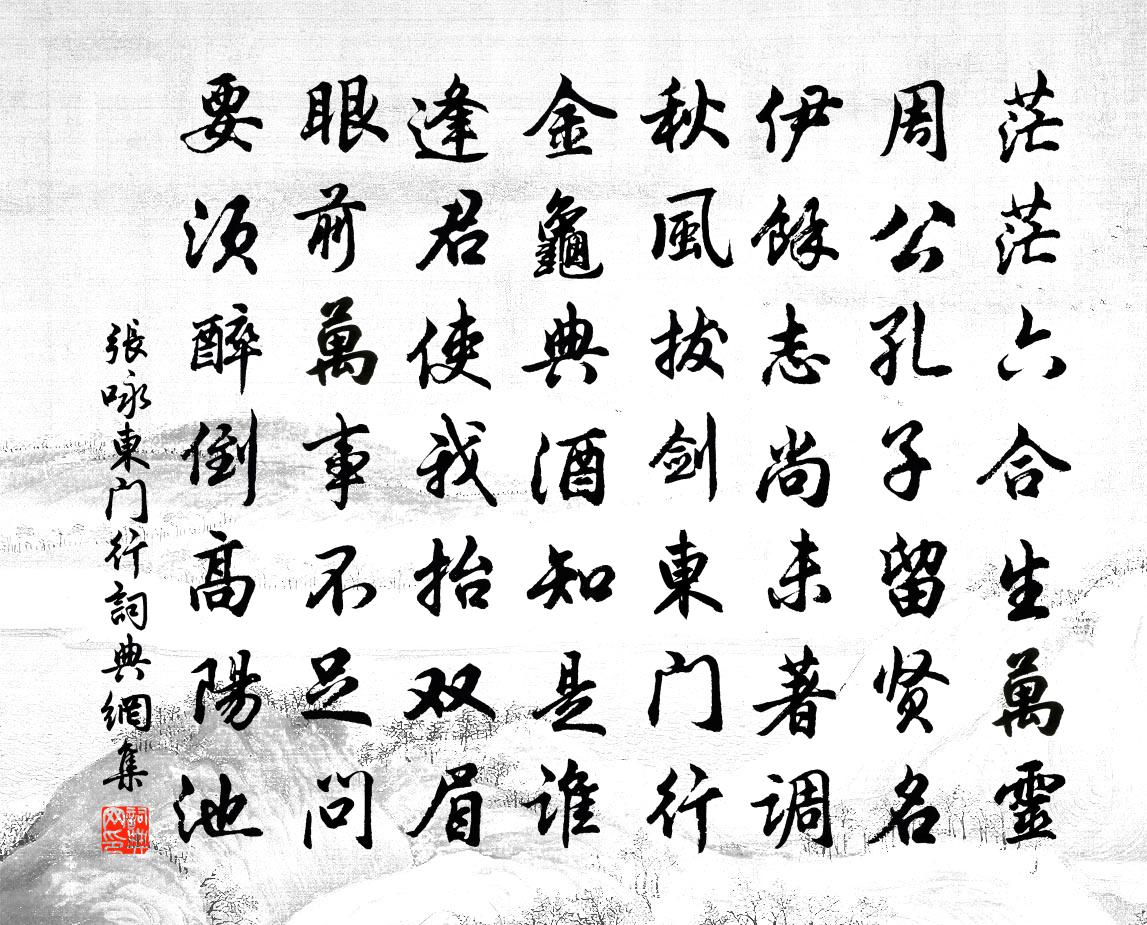 茫茫六合生萬靈
周公孔子留贤名
伊餘志尚未著调
秋風拔剑東门行
金龜典酒知是谁
逢君使我抬双眉
眼前萬事不足问
要须醉倒高陽池
張咏東门行詞典網集